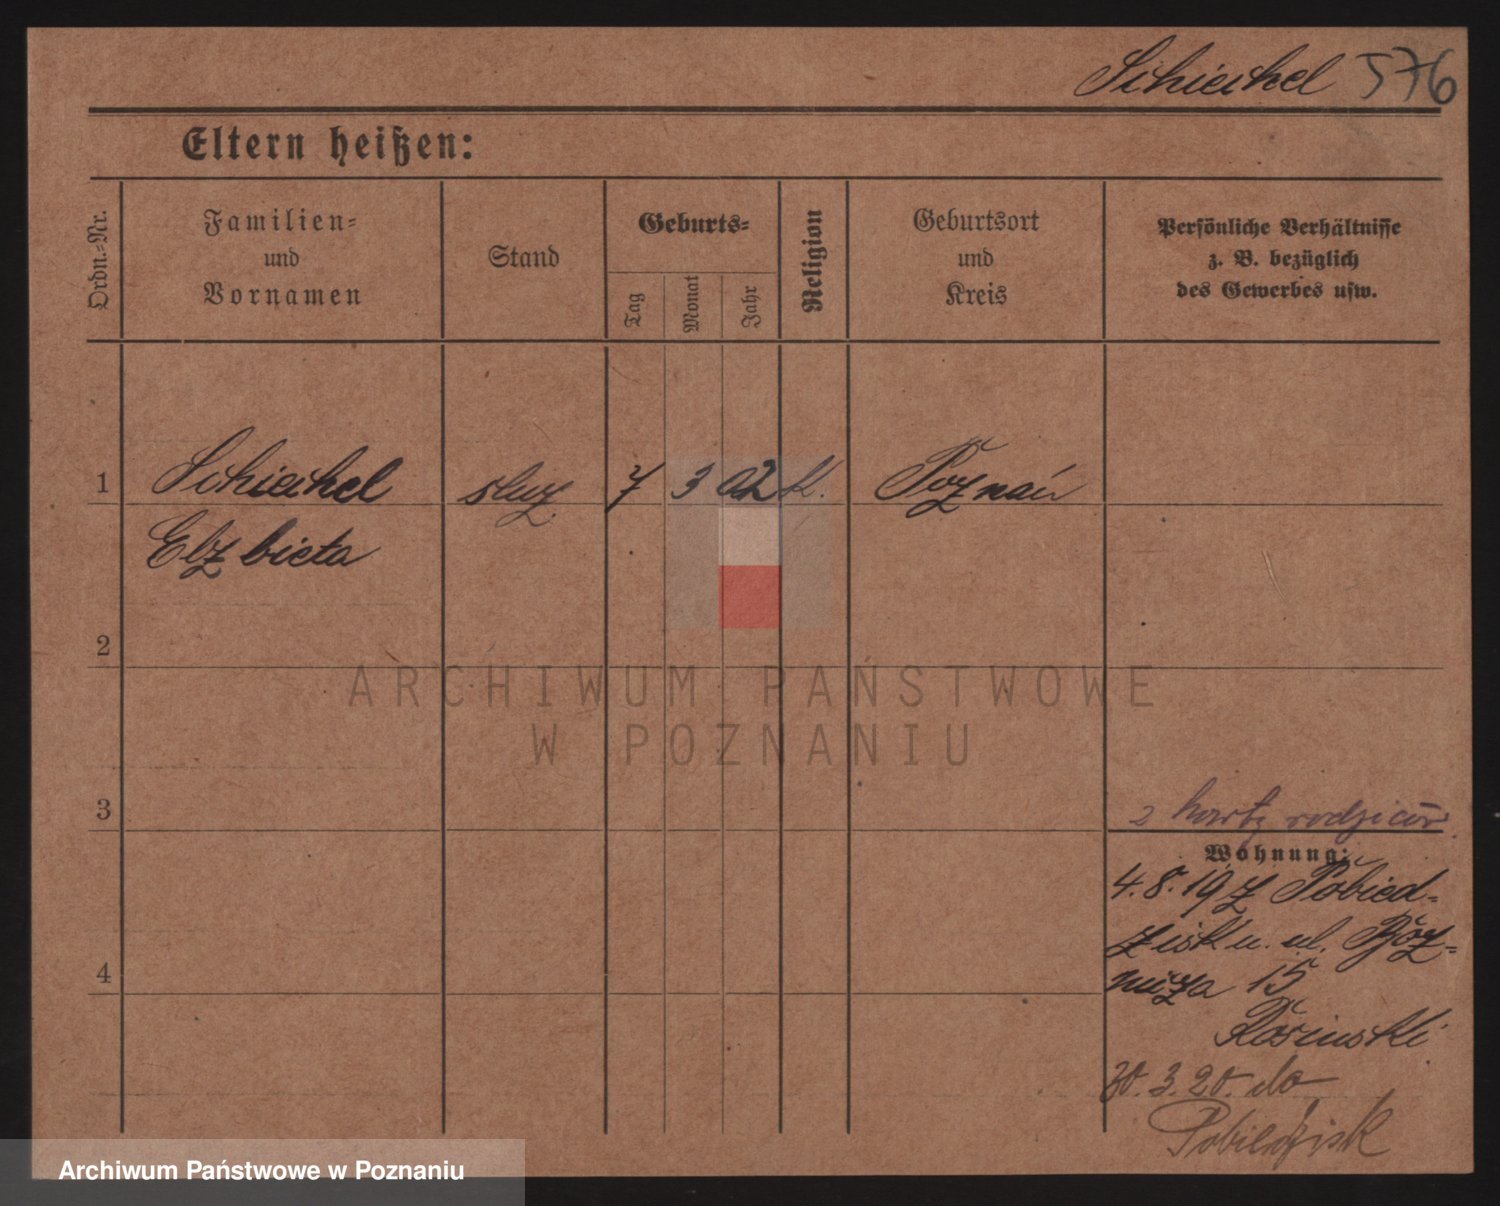 Schieckel 576
Eltern heißen:
Ordn.-Nr.
Familien-
und
Vornamen
Stand
Geburts-
Tag
Monat
Jahr
Religion
Geburtsort
und
Kreis
Persönliche Verhältnisse
z. B. bezüglich
des Gewerbes usw.
1
Schieckel
służ.
7 3 02 k.
Poznań
Elzbieta
2
ARCHIWUM PAŃSTWOWE
W POZNANIU
3
z kartą rodziców.
Wohnung:
4.8.19 z Pobied-
zisk u. ul.
15
30.3.20. do
Pobiedzisk
4
Archiwum Państwowe w Poznaniu